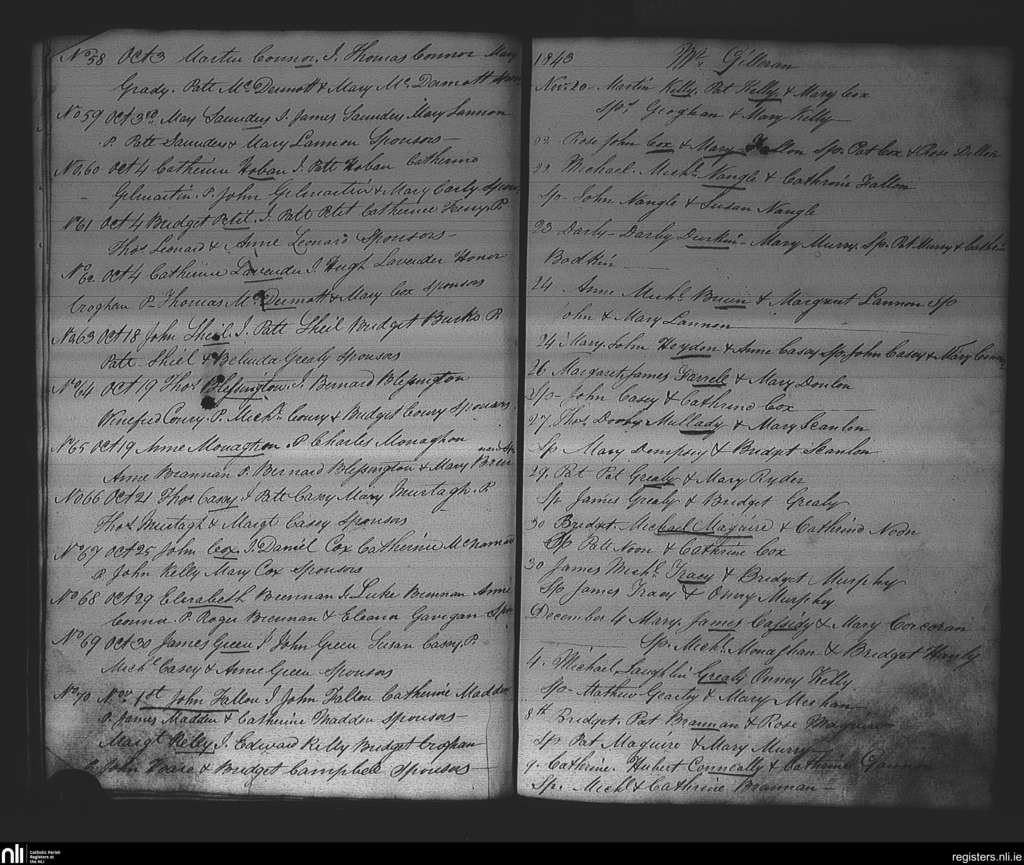 No 58 Oct 3 Martin Connor. I. Thomas Connor Mary
Grady. Patt McDermott & Mary McDermott
No 59 Oct 3rd May Saunders I James Saunders Mary Lannon
P. Patt Saunders & Mary Lannon Sponsors
No 60 Oct 4 Catherine Hoban I. Patt Hoban Catherine
Gilmartin. P. John Gilmartin & Mary Carly Spons
No 61 Oct 4 Bridget Petit. I. Patt Petit Catherine Henry P.
Thos Leonard & Anne Leonard Sponsors
No 62 Oct 4 Catherine Lavender I. Hugh Lavender Honor
Croghan P. Thomas McDermott & Mary Cox Sponsors
No 63 Oct 18 John Sheil. I. Patt Sheil Bridget Burke P.
Patt Sheil & Belinda Grealy Sponsors
No 64 Oct 19 Thos Blessington. I. Bernard Blessington
Winefred Coury. P. Michl Coury & Bridget Coury Sponsors
No 65 Oct 19 Anne Monaghon P Charles Monaghon
Anne Brannan P. Bernard Blessington & Mary Bren
No 66 Oct 21 Thos Casey I Patt Casey Mary Murtagh. P.
Thos Murtagh & Margt Casey Sponsors
No 67 Oct 25 John Cox I. Daniel Cox Catherine McNamara
P John Kelly Mary Cox Sponsors
No 68 Oct 29 Elizabeth Brennan I. Luke Brennan Anne
Connor P. Roger Brennan & Eleanor Gavigan Spo
No 69 Oct 30 James Green I John Green Susan Casey. P.
Michl Casey & Anne Green Sponsors
No 70 Nov. 1st John Fallon I John Fallon Catherine Madden
P. James Madden & Catherine Madden Sponsors
Margt Kelly I. Edward Kelly Bridget Croghan
P. John Hoare & Bridget Campbell Sponsors
1843 Wm Gilleran
Nov. 20 Martin Kelly, Pat Kelly & Mary Cox
Sps Geoghan & Mary Kelly
22 Rose John Cox & Mary Fallon Sp. Pat Cox & Rose Dillon
23 Michael. Michl Nangle & Cathrine Fallon
Sp. John Nangle & Susan Nangle
23 Darby - Darby Durkin - Mary Murry. Sp. Pat Murry & Cathrin
Bodkin
24 Anne Michl Bruin & Margaret Lannon Sp
John & Mary Lannon
24 Mary. John Heydon & Anne Casey Sp. John Casey & Mary
26 Margaret, James Farrell & Mary Donlon
Sp - John Casey & Cathrine Cox
27 Thos Mullady & Mary Scanlon
Sp Mary Dempsey & Bridget Scanlon
29. Pat Pat Grealy & Mary Ryder
Sp James Grealy & Bridget Grealy
30 Bridget Michael Maguire & Cathrine Noon
Sp Patt Noon & Cathrine Cox
30 James Michl Tracy & Bridget Murphy
Sp James Tracy & Onny Murphy
December 4 Mary. James Cassidy & Mary Corcoran
Sp. Michl Monaghan & Bridget
4. Michael Laughlin Grealy Onney Kelly
Sp - Mathew Gearty & Mary Meehan
8th Bridget. Pat Brannan & Rose Maguire
Sp Pat Maguire & Mary Murry
9. Catherine. Hubert Conneally & Catherine Gannon
Sp. Michl & Cathrine Brannan -
nli Catholic Parish
Registers at
the NLI
registers.nli.ie